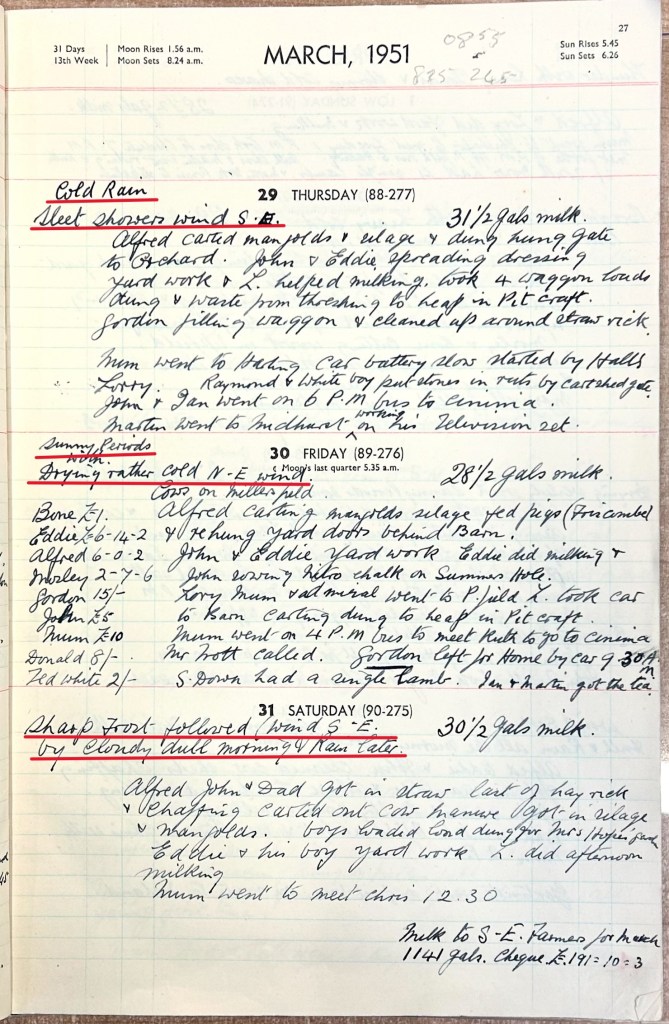 27
31 Days
13th Week
Moon Rises 1.56 a.m.
Moon Sets 8.24 a.m.
MARCH, 1951
0855
835 245
Sun Rises 5.45
Sun Sets 6.26
Cold Rain
29 THURSDAY (88-277)
Sleet showers wind S.E. 31 1/2 gals milk.
Alfred carted mangolds & silage & dung hung gate
to Orchard. John & Eddie spreading dressing
Yard work & L. helped milking. took 4 waggon loads
dung & waste from threshing to heap in Pit craft.
Gordon filling waggon & cleaned up around straw rick.
Mum went to Harting Car battery slow started by Halls
Lorry. Raymond & White boy put stones in ruts by cart shed gate.
John & Ian went on 6 P.M bus to cinema.
Martin went to Midhurst working on his Television set.
Sunny Periods
with
30 FRIDAY (89-276)
Drying rather cold N-E wind.
☾ Moon's last quarter 5.35 a.m.
28 1/2 gals milk.
Cows on Millersfield
Bone £1. Alfred carting mangolds silage fed pigs (Friscombe)
Eddie £6-14-2 & rehung yard doors behind Barn.
Alfred 6-0-2 John & Eddie Yard work Eddie did milking &
Mosley 2-7-6 John sowing Nitro chalk on Summer Hole.
Gordon 15/- Lory Mum & admiral went to P.field L. took car
John £5 to Barn carting dung to heap in Pit craft.
Mum £10 Mum went on 4 P.M bus to meet Ruth to go to cinema
Donald 8/- Mr Trott called. Gordon left for Home by car 9-30 AM
Ted White 2/- S. Down had a single lamb. Ian & Martin got the tea.
31 SATURDAY (90-275)
Sharp Frost followed wind S-E. 30 1/2 gals milk.
by Cloudy dull morning & Rain later.
Alfred John & Dad got in straw last of hay rick
& chaffing carted out cow manure got in silage
& mangolds. boys loaded load dung for Mrs
Eddie & his boy yard work L. did afternoon
milking
Mum went to meet Chris 12.30
Milk to S-E. Farmers for March
1141 gals. Cheque £.191=10=3